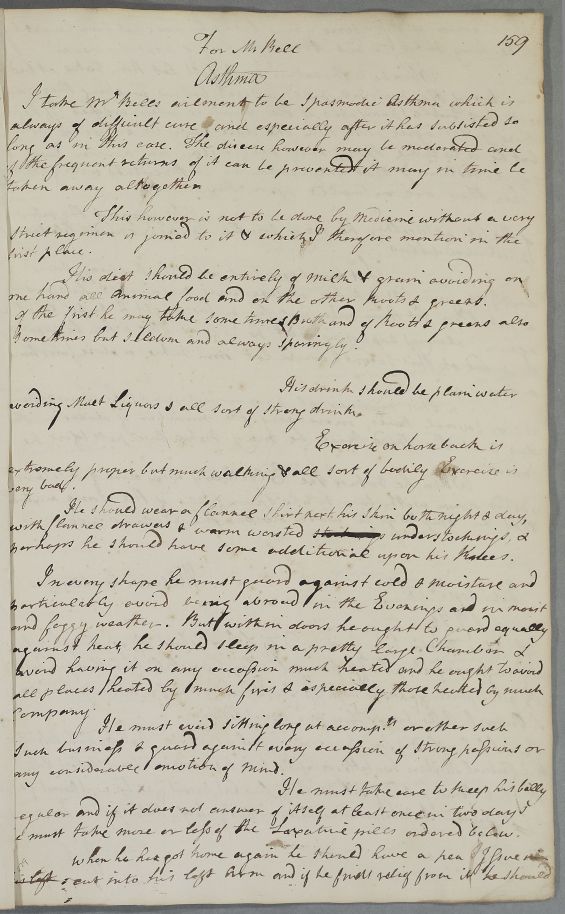 159
For Mr Bell
Asthma
I take Mr. Bells ailment to be Spasmodic Asthma which is
always of difficult cure and especially after it has subsisted so
long as in this case. The disease however may be moderated and
if the frequent returns of it can be prevented it may in time be
taken away altogether
This however is not to be done by Medicine without a very
strict regimen is joined to it & which I therefore mention in the
first place.
His diet should be entirely of milk & grain avoiding on
one hand all animal food and on the other roots & greens.
of the first he may take some times Broth and of Roots & greens also
sometimes but seldom and always sparingly.
His drink should be plain water
avoiding Malt Liquors & all sort of strong drink.
Exercise on horse back is
extremely proper but much walking & all sort of bodily Exercise is
very bad.
He should wear a flannel shirt next his skin both night & day,
with flannel drawers & warm worsted understockings, &
perhaps he should have some additional upon his Knees.
In every shape he must guard against cold & moisture and
particularly avoid being abroad in the Evenings and in moist
and foggy weather. But within doors he ought to guard equally
against heat, he should sleep in a pretty large Chamber &
avoid having it on any occasion much heated and he ought to avoid
all places heated by much fires & especially those heated by much
Company.
He must avoid sitting long at accompts or other such
Such business & guard against every occassion of strong passions or
any considerable emotion of mind.
He must take care to keep his belly
regular and if it does not answer of itself at least once in two days
he must take more or less of the Laxative pills ordered below.
When he has got home again he should have a pea Issue
cut into his left Arm and if he finds relief from it he should